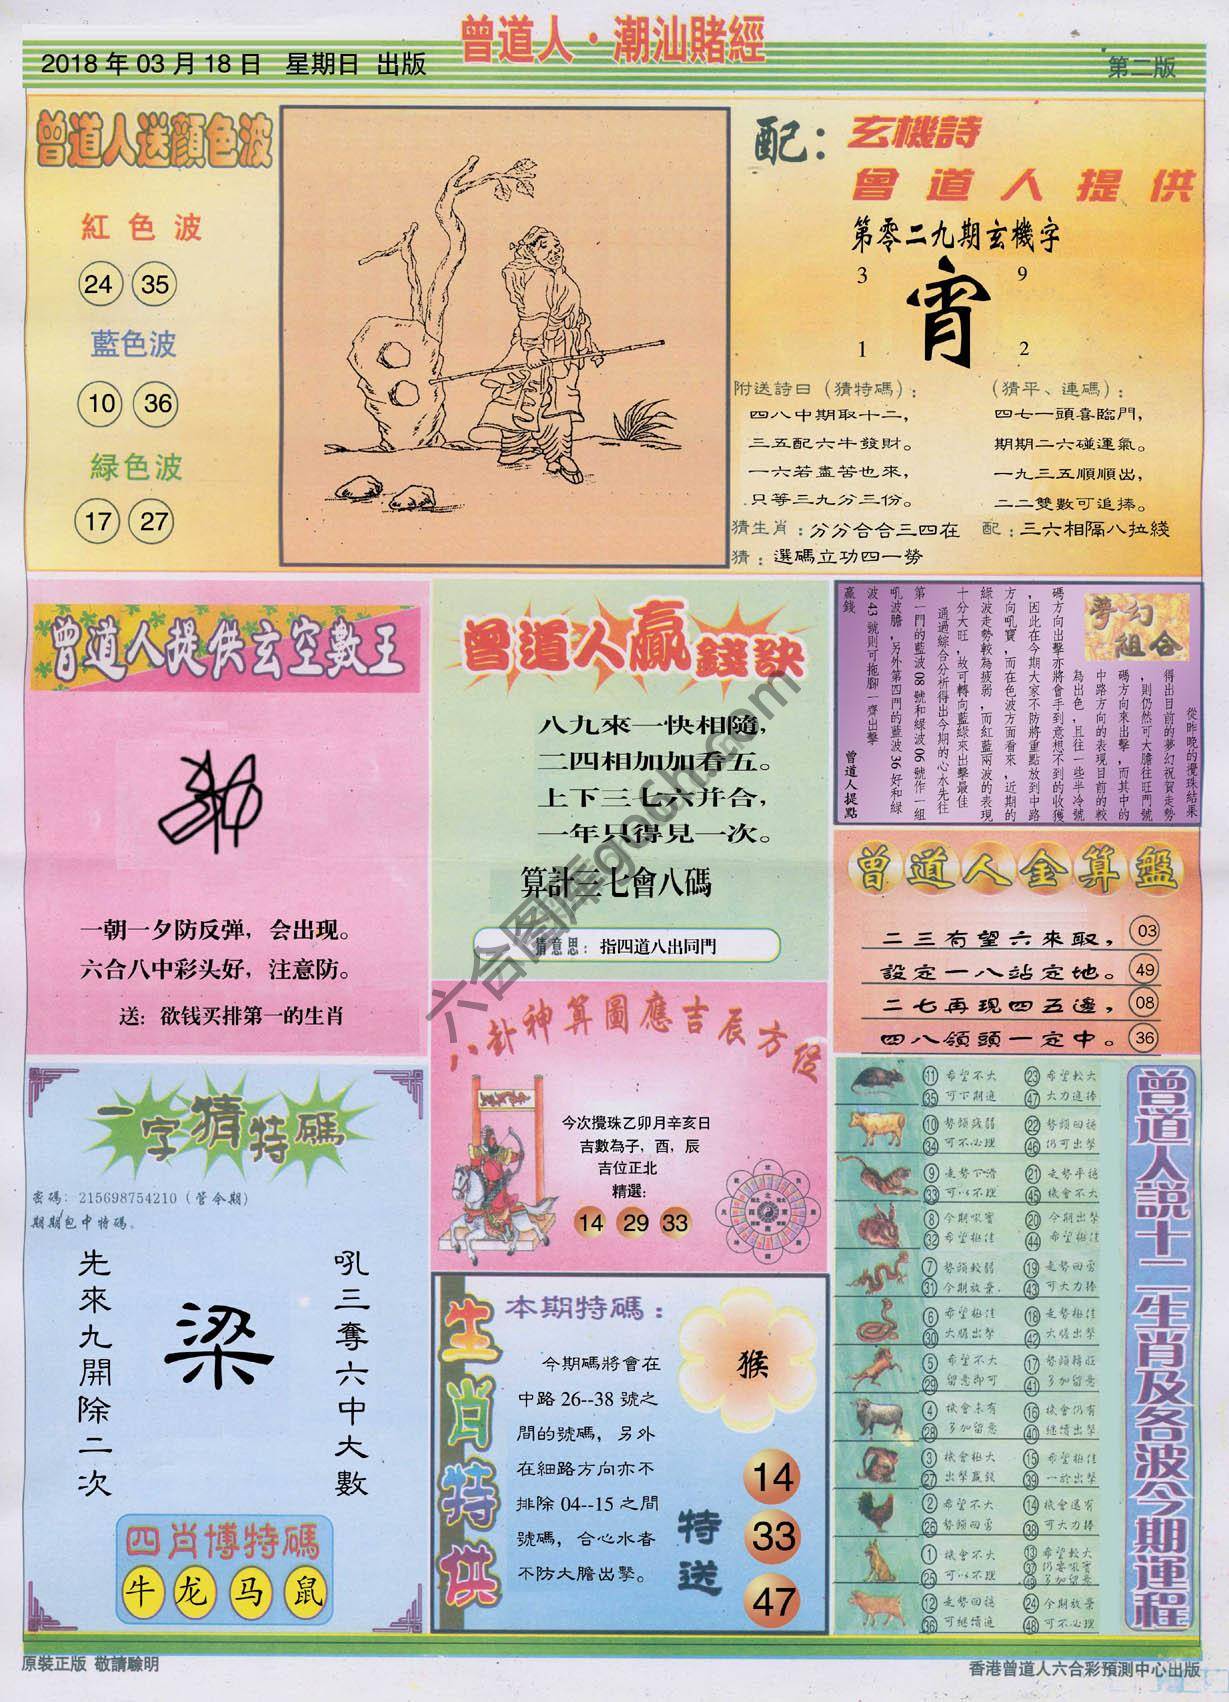 曾道人·潮汕賭經
2018 年 03 月 18 日 星期日 出版
第二版
曾道人送顏色波
紅色波
24 35
藍色波
10 36
緑色波
17 27
配：玄機詩
曾道人提供
第零二九期玄機字
3 9
宵
1 2
附送詩曰（猜特碼）：
四八中期取十二，
三五配六牛發財。
一六若盡苦也來，
只等三九分三份。
（猜平、連碼）：
四七一頭喜臨門，
期期二六碰運氣。
一九三五順順出，
二二雙數可追捧。
猜生肖：分分合合三四在
配：三六相隔八拉綫
猜：選碼立功四一勞
曾道人提供玄空數王
一朝一夕防反弹，会出现。
六合八中彩头好，注意防。
送：欲钱买排第一的生肖
曾道人贏錢訣
八九來一快相隨，
二四相加加看五。
上下三七六并合，
一年只得見一次。
算計三七會八碼
猜意思：指四道八出同門
夢幻組合
從昨晚的攪珠結果
得出目前的夢幻祝賀走勢
，則仍然可大膽往旺門號
碼方向來出擊，而其中的
中路方向的表現目前的較
為出色，且往一些半冷號
碼方向出擊亦將會手到意想不到的收獲
，因此在今期大家不防將重點放到中路
方向吼寶，而在色波方面看來，近期的
綠波走勢較為疲弱，而紅藍兩波的表現
十分大旺，故可轉向藍綠來出擊最佳
通過綜合分析得出今期的心水先往
第一門的藍波 08 號和緑波 06 號作一組
吼波膽，另外第四門的藍波 36 好和綠
波 43 號則可拖腳一齊出擊
贏錢
曾道人提點
曾道人金算盤
二三有望六來取， 03
設定一八站定地。 49
二七再現四五邊， 08
四八領頭一定中。 36
八卦神算圖應吉辰方位
今次攪珠乙卯月辛亥日
吉數為子，酉，辰
吉位正北
精選：
14 29 33
一字猜特碼
密碼：215698754210（管今期）
期期包中特碼。
先來九開除二次
梁
吼三奪六中大數
四肖博特碼
牛 龙 马 鼠
生肖特供
本期特碼：
今期碼將會在
中路 26--38 號之
間的號碼，另外
在細路方向亦不
排除 04--15 之間
號碼，合心水者
不防大膽出擊。
猴
特送
14
33
47
曾道人説十二生肖及各波今期運程
11 希望不大 23 希望較大
35 可下期追 47 大力追捧
10 勢頭殘弱 22 勢頭回穩
34 可不必理 46 仍可出擊
9 走勢下滑 21 走勢平穩
33 可以不理 45 機會不大
8 今期吼寶 20 今期出擊
32 希望極佳 44 希望極佳
7 勢頭較弱 19 走勢回勇
31 今期放棄. 43 可大力捧
6 希望極佳 18 走勢極佳
30 大膽出擊 42 大膽出擊
5 希望不大 17 勢頭轉旺
29 留意即可 41 多加留意
4 機會未有 16 機會仍有
28 多加留意 40 繼續出擊
3 機會極大 15 希望極佳
27 出擊贏錢 39 一於出擊
2 希望不大 14 機會還有
26 勢頭回勇 38 可大力捧
1 機會不大 13 希望較大
37 仍要吼實
25 可以不理 49 多加留意
12 走勢回穩 24 今期放棄
36 可繼續追 48 可不必理
六合图库gocm.com
原裝正版 敬請驗明
香港曾道人六合彩預測中心出版